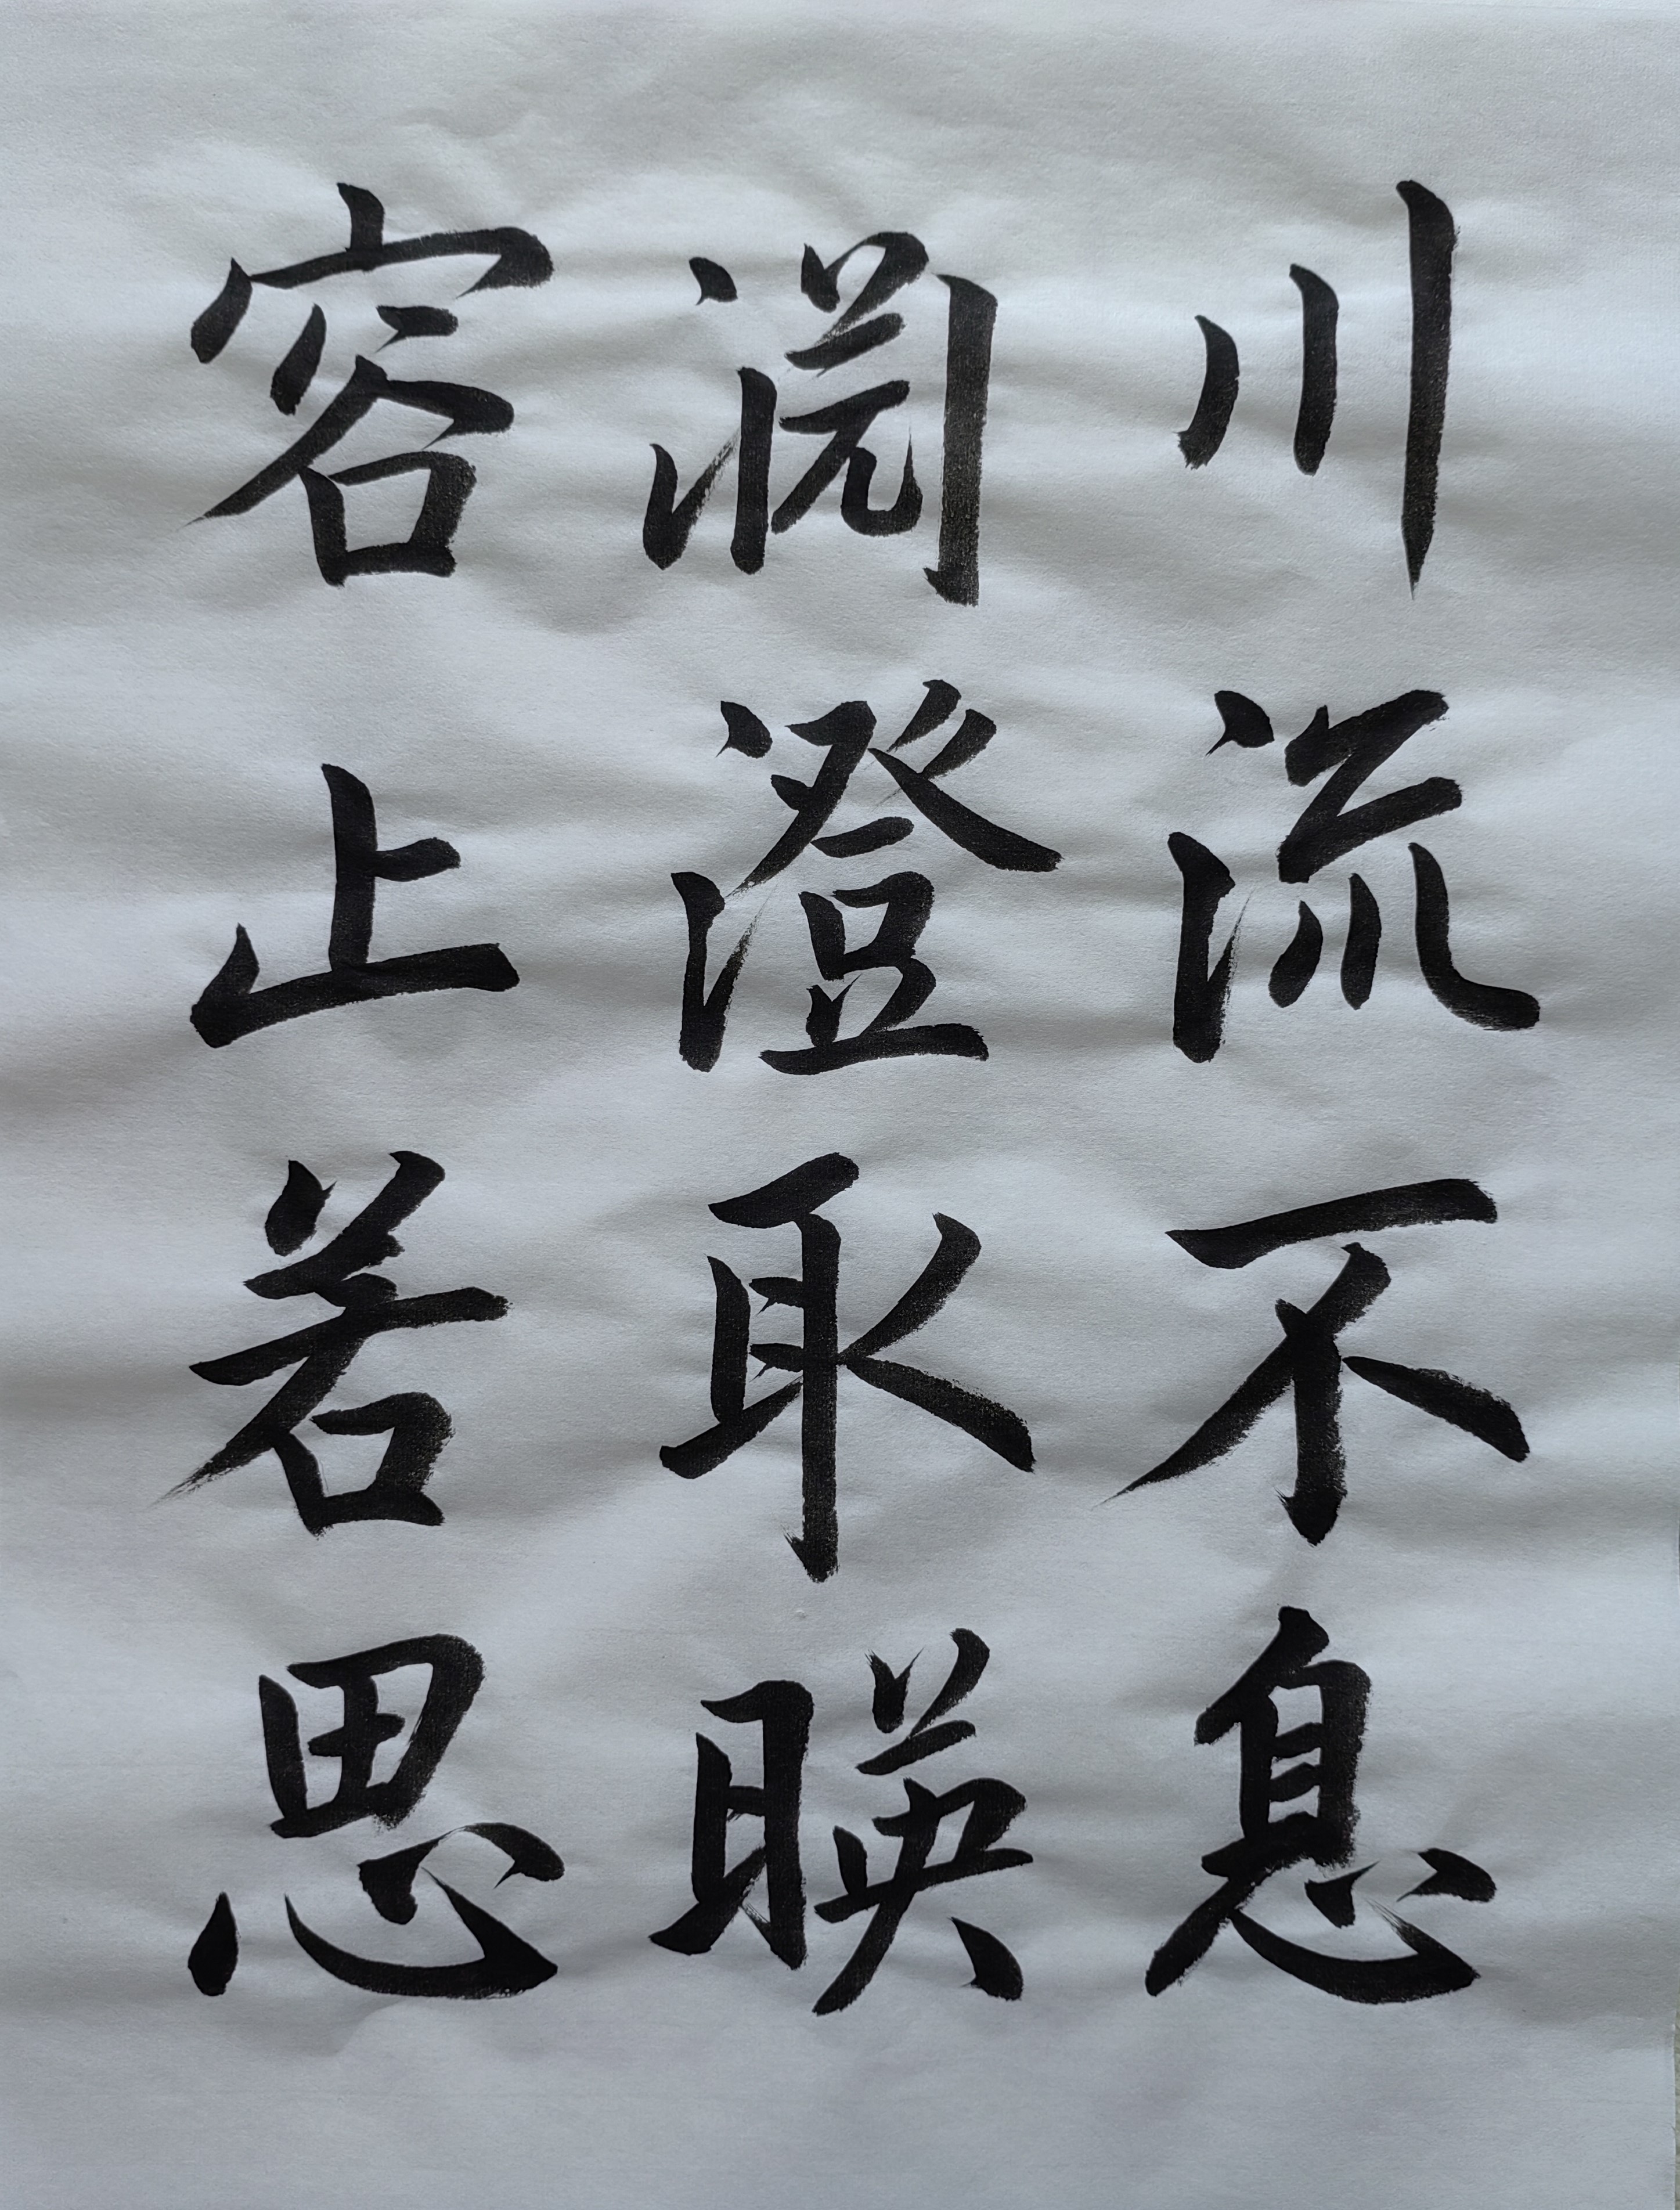 川流不息
渊澄取暎
容止若思